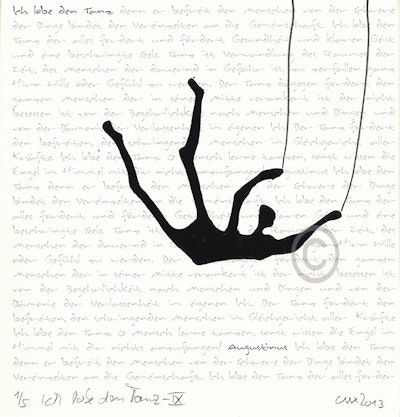 Ich lobe den Tanz denn er befreit den Menschen von der Schwere
der Dinge bindet den Vereinzelten an die Gemeinschaft. Ich lobe den
Tanz der alles fordert und fördert Gesundheit und klaren Geist
und eine beschwingte Seele Tanz ist Verwandlung des Raumes der
Zeit, des Menschen der dauernd in Gefahr ist zu zerfallen ganz
Hirn Wille oder Gefühl zu werden. Der Tanz dagegen fordert den
ganzen Menschen der in seiner Mitte verankert ist der nicht
besessen ist von der Begehrlichkeit nach Menschen und Dingen und
von der Dämonie der Verlassenheit im eigenen Ich Der Tanz fordert
den befreiten, den schwingenden Menschen im Gleichgewicht aller
Kräfte Ich lobe den Tanz O Mensch lerne tanzen, sonst wissen die
Engel im Himmel mit dir
von der Schwere der Dinge
alles fordert und fördert
beschwingte Seele Tanz ist des Raumes der Zeit, des
Menschen der dauernd in Gefahr Hirn Wille
oder Gefühl zu werden. Der ganzen
Menschen der in seiner Mitte verankert ist der nicht besessen ist
von der Begehrlichkeit nach Menschen und Dingen und von der
Dämonie der Verlassenheit im eigenen Ich. Der Tanz fordert den
befreiten, den schwingenden Menschen im Gleichgewicht aller Kräfte
Ich lobe den Tanz O Mensch lerne tanzen sonst wissen die Engel im
Himmel mit dir nichts anzufangen! Augustinus Ich lobe den Tanz
denn er befreit den Menschen von der Schwere der Dinge bindet den
Vereinzelten an die Gemeinschaft. Ich lobe den Tanz der alles fordert
©
1/5 Ich lobe den Tanz-IX 2013